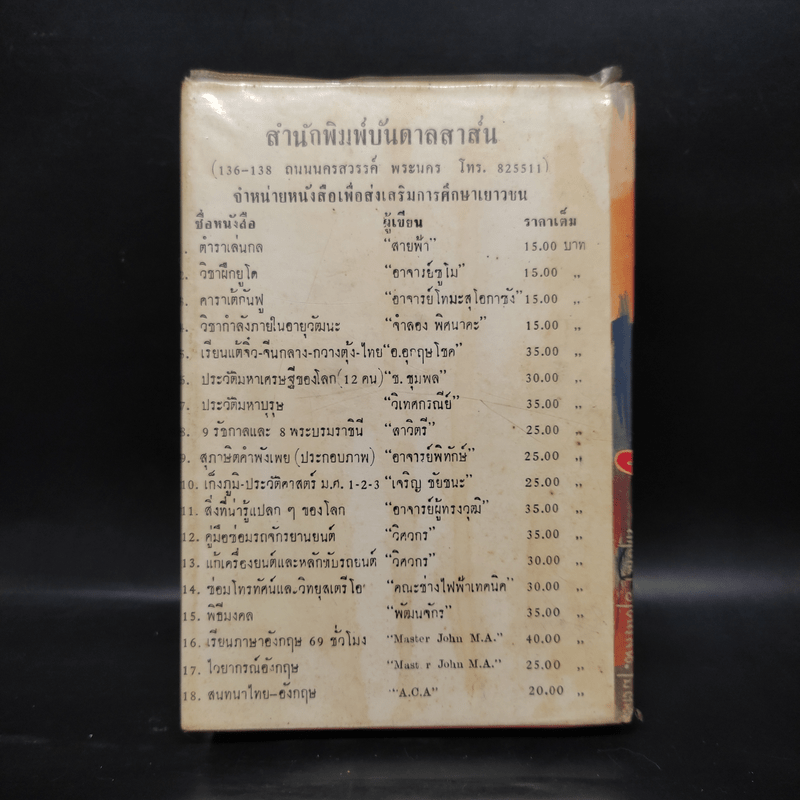 สำนักพิมพ์บันดาลสาส์น
(136-138 ถนนนครสวรรค์ พระนคร โทร. 825511)
จำหน่ายหนังสือเพื่อส่งเสริมการศึกษาเยาวชน
ชื่อหนังสือ ผู้เขียน ราคาเต็ม
. ตำราเล่นกล "สายฟ้า" 15.00 บาท
2. วิชาฝึกยูโด "อาจารย์ซูโม" 15.00 ,,
3. คาราเต้กันฟู "อาจารย์โทมะสุโอกาซัง" 15.00 ,,
4. วิชากำลังภายในอายุวัฒนะ "จำลอง พิศนาคะ" 15.00 ,,
5. เรียนแต้จิ๋ว-จีนกลาง-กวางตุ้ง-ไทย "อ.อุกฤษโชค" 35.00 ,,
6. ประวัติมหาเศรษฐีของโลก (12 คน) "ช. ชุมพล" 30.00 ,,
7. ประวัติมหาบุรุษ "วิเทศกรณีย์" 35.00 ,,
8. 9 รัชกาลและ 8 พระบรมราชินี "สาวิตรี" 25.00 ,,
9. สุภาษิตคำพังเพย (ประกอบภาพ) "อาจารย์พิทักษ์" 25.00 ,,
10. เก็งภูมิ-ประวัติศาสตร์ ม.ศ. 1-2-3 "เจริญ ชัยชนะ" 25.00 ,,
11. สิ่งที่น่ารู้แปลก ๆ ของโลก "อาจารย์ผู้ทรงวุฒิ" 35.00 ,,
12. คู่มือซ่อมรถจักรยานยนต์ "วิศวกร" 35.00 ,,
13. แก้เครื่องยนต์และหลักขับรถยนต์ "วิศวกร" 30.00 ,,
14. ซ่อมโทรทัศน์และวิทยุสเตริโอ "คณะช่างไฟฟ้าเทคนิค" 30.00 ,,
15. พิธีมงคล "พัฒนจักร" 35.00 ,,
16. เรียนภาษาอังกฤษ 69 ชั่วโมง "Master John M.A." 40.00 ,,
17. ไวยากรณ์อังกฤษ "Mast r John M.A." 25.00 ,,
18. สนทนาไทย-อังกฤษ "A.C.A" 20.00 ,,